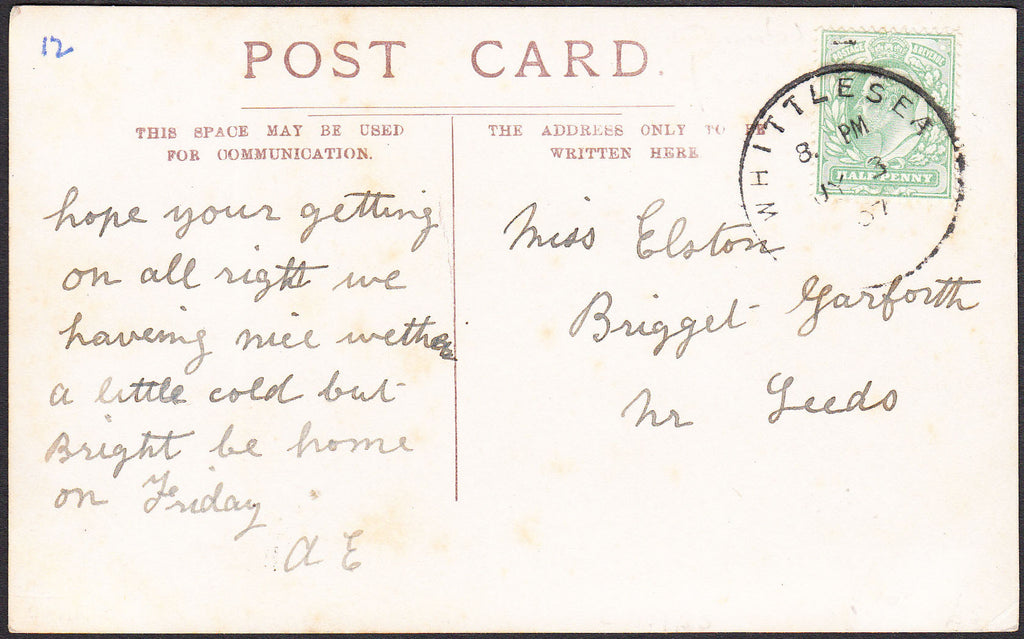 12
POST CARD.
THIS SPACE MAY BE USED
FOR COMMUNICATION.
THE ADDRESS ONLY TO BE
WRITTEN HERE
WHITTLESEA
8. PM
JY 3
07
POSTAGE REVENUE
HALFPENNY
hope your getting
on all right we
haveing nice wether
a little cold but
Bright be home
on Friday
A E
Miss Elston
Brigget Garforth
Nr Leeds